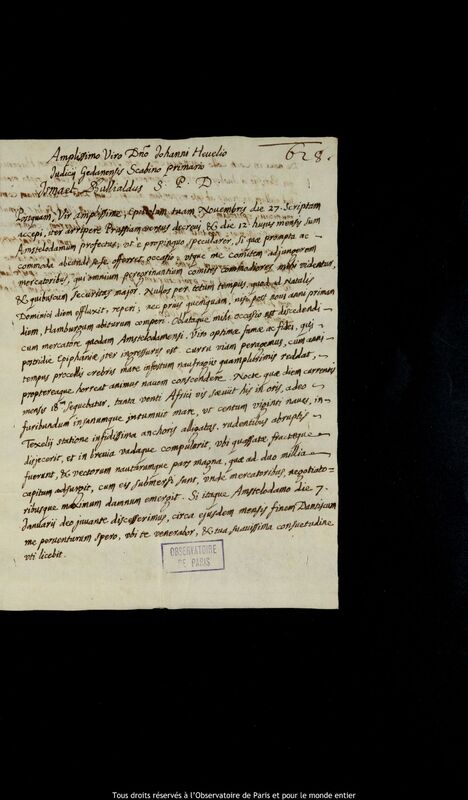 628.
Amplissimo Viro Dño Johanni Hevelio
Judicij Gedanensis Scabino primario
Ismael Bullialdus S. P. D
Postquam, Vir amplissime, Epistolam tuam Novembris die 27. scriptam
accepi, iter arripere Prussiam versus decrevi, & die 12 huius mensis sum
Amstelodamum profectus; ut e propinquo specularer, si quæ prompta ac
commoda abeundi sese offerret occasio; utque me comitem adjungerem
mercatoribus, qui omnium peregrinantium comites commodiores mihi videntur,
& quibuscum securitas major. Nullos per totum tempus, quod ad Natalis
Dominici diem effluxit, reperi; nec prius quenquam, nisi post novi anni primam
diem, Hamburgum abiturum comperi. Oblataque mihi occasio est discedendi
cum mercatore quodam Amstelodamensi. Viro optimæ famæ ac fidei, qui
postridie Epiphaniæ iter ingressurus est. curru viam peragemus, cum anni
tempus procellis crebris mare infestum naufragijs quamplurimis reddat,
proptereaque horreat animus navem conscendere. Nocte quæ diem currentis
mensis 18m sequebatur, tanta venti Africi vis sæviit his in oris, adeo
furibundum insanumque intumuit mare, ut centum viginti naves, in
Texelij statione infidissima anchoris alligatas, rudentibus abruptis
disjecerit, et in brevia vadaque compulerit, ubi quassatæ, fractæque
fuerunt, & vectorum nautarumque pars magna, quæ ad duo millia
capitum adsurgit, cum eis submersi sunt, unde mercatoribus negotiato-
ribusque maximum damnum emergit. Si itaque Amstelodamo die 7.
Januarij deo juvante discesserimus, circa ejusdem mensis finem Dantiscum
me perventurum spero, ubi te venerabor, & tua suavissima consuetudine
uti licebit.
OBSERVATOIRE
DE PARIS
Tous droits réservés à l'Observatoire de Paris et pour le monde entier